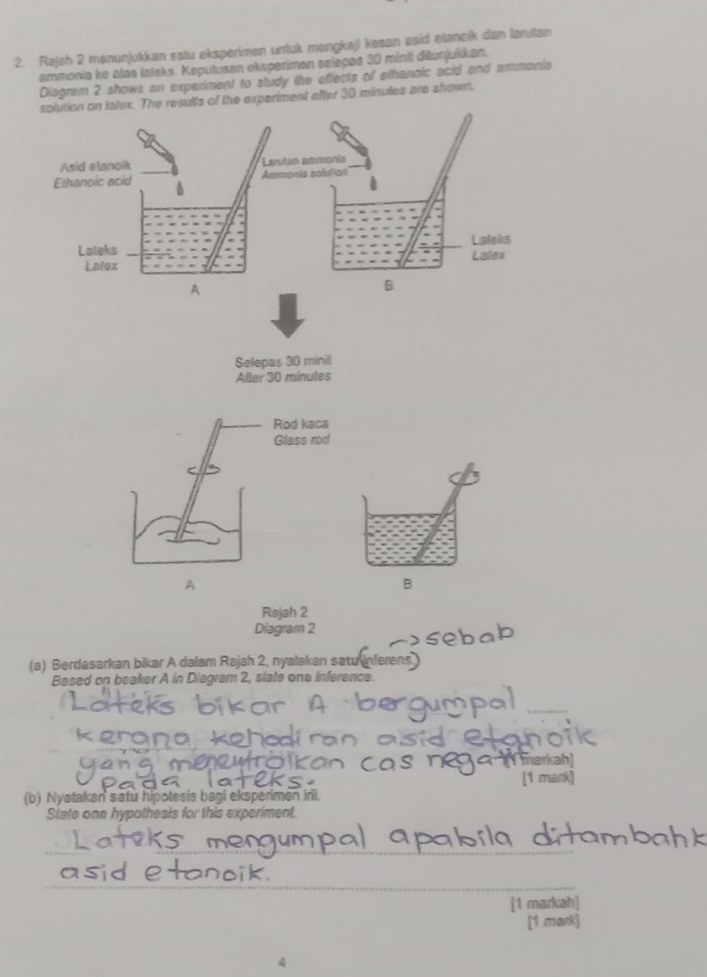 2. Rajah 2 menunjukkan satu eksperimen untuk mengkaji kesan asid etanoik dan larutan
ammonia ke atas lateks. Keputusan eksperimen selepas 30 minit ditunjukkan.
Diagram 2 shows an experiment to study the effects of ethanoic acid and ammonia
solution on latex. The results of the experiment after 30 minutes are shown.
Asid etanoik
Ethanoic acid
Larutan ammonia
Ammonia solution
Lateks
Latex
Lateks
Latex
A
B
Selepas 30 minit
After 30 minutes
Rod kaca
Glass rod
A
B
Rajah 2
Diagram 2
→sebab
(a) Berdasarkan bikar A dalam Rajah 2, nyatakan satu inferens.
Based on beaker A in Diagram 2, state one inference.
Lateks bikar A bergumpal
kerana kehadiran asid etanoik
yang meneutralkan cas negatif markah]
pada lateks.
[1 mark]
(b) Nyatakan satu hipotesis bagi eksperimen ini.
State one hypothesis for this experiment.
Lateks mengumpal apabila ditambahk
asid etanoik.
[1 markah]
[1 mark]
4